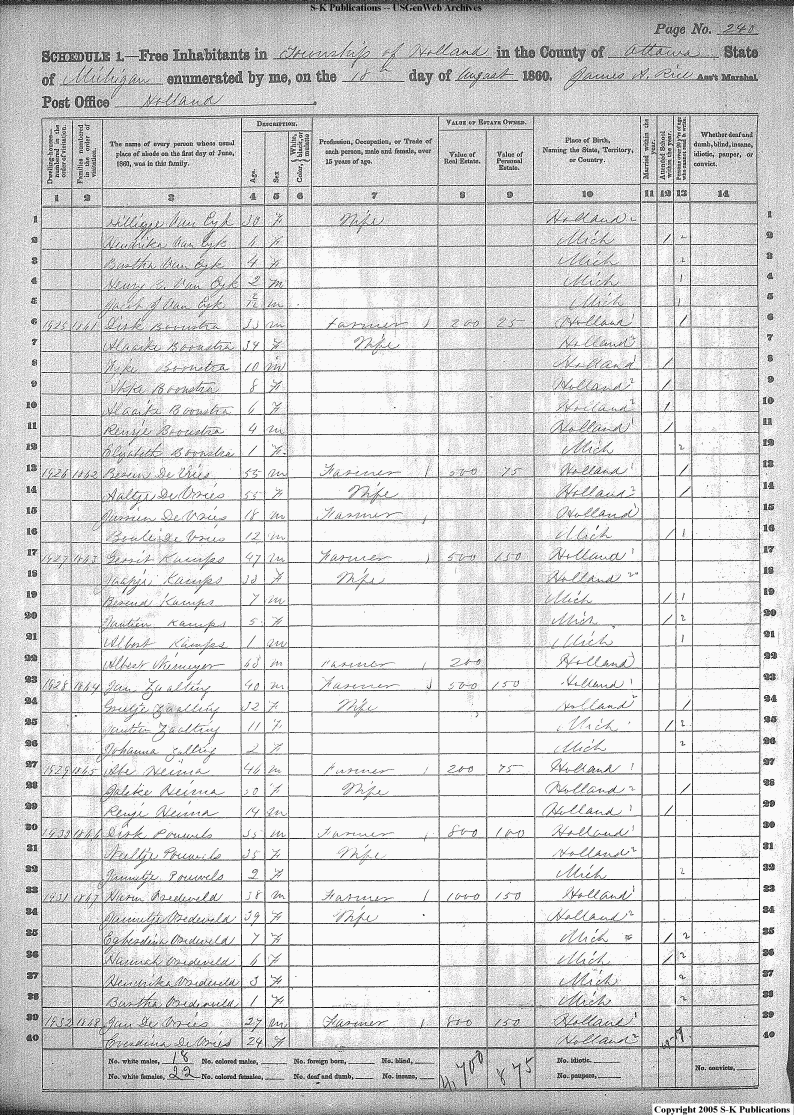 S-K Publications -- USGenWeb Archives
Page No. 240
SCHEDULE 1.—Free Inhabitants in Township of Holland in the County of Ottawa State
of Michigan enumerated by me, on the 18th day of August 1860. James A. Rice Ass't Marshal
Post Office Holland
Dwelling-houses—numbered in the order of visitation.
Families numbered in the order of visitation.
The name of every person whose usual place of abode on the first day of June, 1860, was in this family.
DESCRIPTION.
Age.
Sex
Color, White, black, or mulatto
Profession, Occupation, or Trade of each person, male and female, over 15 years of age.
VALUE OF ESTATE OWNED.
Value of Real Estate.
Value of Personal Estate.
Place of Birth, Naming the State, Territory, or Country.
Married within the year.
Attended School within the year.
Whether deaf and dumb, blind, insane, idiotic, pauper, or convict.
1 2 3 4 5 6 7 8 9 10 11 12 13 14
1 Van Eyk 30 F Wife Holland 1
2 Hendrika Van Eyk 6 F Mich 1 2
3 Van Eyk 4 F Mich 3
4 Henry Van Eyk 2 m Mich 1 4
5 Jacob J Van Eyk m Mich 1 5
6 1925 1861 Dirk Boonstra 35 m Farmer 200 25 Holland 1 6
7 Boonstra 34 F Wife Holland 7
8 Boonstra 10 m Holland 1 8
9 Boonstra 8 F Holland 1 9
10 Boonstra 6 F Holland 1 10
11 Boonstra 4 m Holland 1 11
12 Elizabeth Boonstra 1 F Mich 2 12
13 1926 1862 De Vries 55 m Farmer 500 75 Holland 1 13
14 Aaltje De Vries 55 F Wife Holland 1 14
15 De Vries 18 m Farmer Holland 15
16 De Vries 12 m Mich 1 1 16
17 1927 1863 Gerrit Kamps 47 m Farmer 500 150 Holland 17
18 Kamps 38 F Wife Holland 18
19 Berend Kamps 7 m Mich 1 1 19
20 Kamps 5 F Mich 1 2 20
21 Albert Kamps 1 m Mich 1 21
22 Albert Niemeyer 63 m Farmer 200 Holland 22
23 1928 1864 Jan Zaalting 40 m Farmer 500 150 Holland 23
24 Grietje Zaalting 32 F Wife Holland 1 24
25 Zaalting 11 F Mich 1 2 25
26 Johanna 2 F Mich 2 26
27 1929 1865 Abe Heima 46 m Farmer 200 75 Holland 27
28 Heima 50 F Wife Holland 1 28
29 Heima 14 m Holland 1 29
30 1930 1866 Dirk Pouwels 35 m Farmer 800 100 Holland 30
31 Neeltje Pouwels 35 F Wife Holland 31
32 Jannetje Pouwels 2 F Mich 2 32
33 1931 1867 Harm Vredeveld 38 m Farmer 1000 150 Holland 33
34 Jannetje Vredeveld 39 F Wife Holland 34
35 Egberdina Vredeveld 7 F Mich 1 2 35
36 Hannah Vredeveld 6 F Mich 1 2 36
37 Hendrika Vredeveld 3 F Mich 2 37
38 Bertha 1 F Mich 2 38
39 1932 1868 Jan De Vries 27 m Farmer 800 150 Holland 39
40 De Vries 24 F Holland 40
No. white males, 18 No. colored males, No. foreign born, No. blind, No. idiotic,
No. white females, 22 No. colored females, No. deaf and dumb, No. insane, 4,700 875 No. paupers, No. convicts,
Copyright 2005 S-K Publications